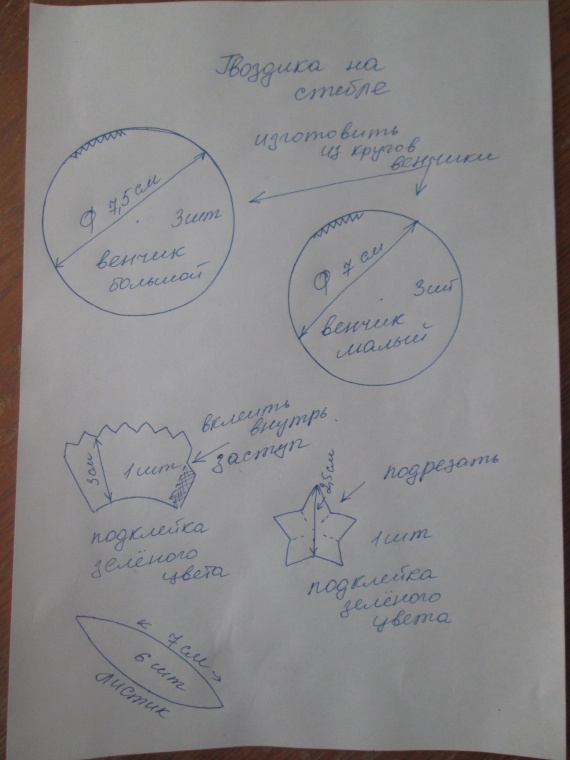 Гвоздика на
стебле
изготовить
из кругов
венчики
ф 7,5 см
3шт
венчик
большой
ф 7 см
3шт
венчик
малый
вклеить
внутрь
заступ
3см
1 шт
подклейка
зелёного
цвета
подрезать
2,5см
1шт
подклейка
зелёного
цвета
7см
6 шт
листик